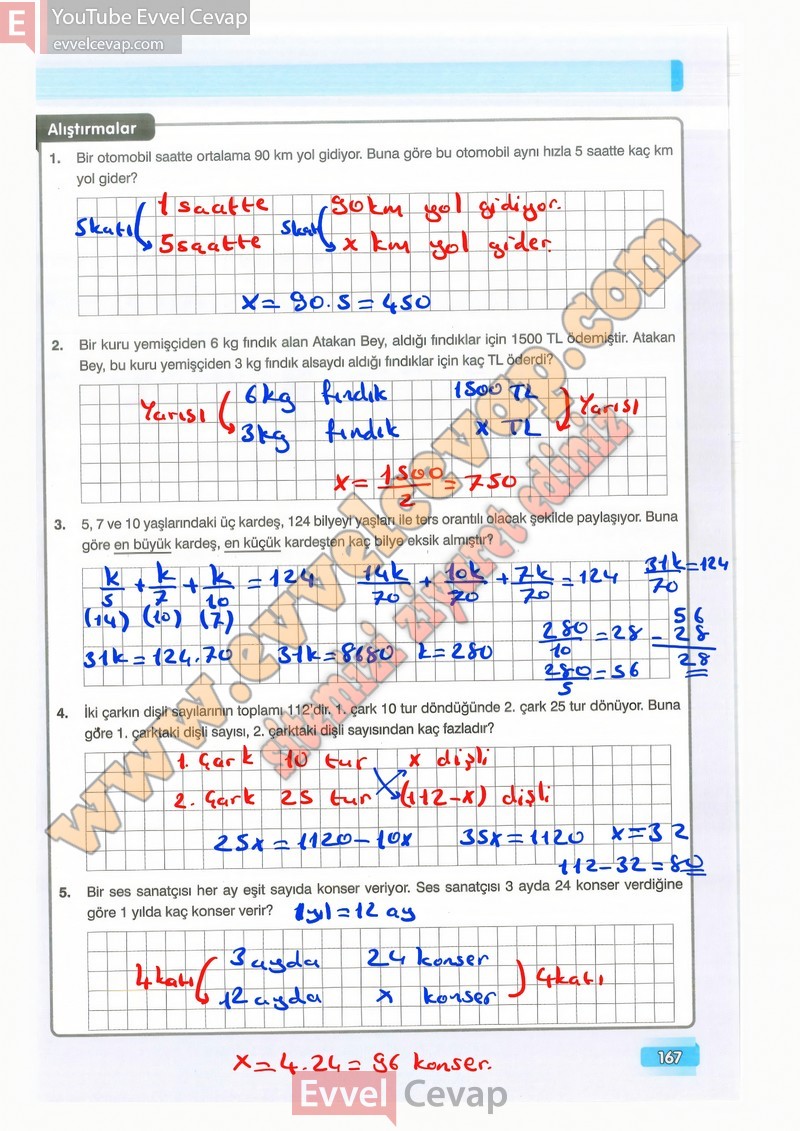 E YouTube Evvel Cevap
evvelcevap.com
Alıştırmalar
1. Bir otomobil saatte ortalama 90 km yol gidiyor. Buna göre bu otomobil aynı hızla 5 saatte kaç km
yol gider?
5katı 1 saatte 5katı 90km yol gidiyor.
5saatte x km yol gider.
x = 90.5 = 450
2. Bir kuru yemişçiden 6 kg fındık alan Atakan Bey, aldığı fındıklar için 1500 TL ödemiştir. Atakan
Bey, bu kuru yemişçiden 3 kg fındık alsaydı aldığı fındıklar için kaç TL öderdi?
Yarısı 6kg fındık 1500 TL Yarısı
3kg fındık x TL
x = 1500/2 = 750
3. 5, 7 ve 10 yaşlarındaki üç kardeş, 124 bilyeyi yaşları ile ters orantılı olacak şekilde paylaşıyor. Buna
göre en büyük kardeş, en küçük kardeşten kaç bilye eksik almıştır?
k/5 + k/7 + k/10 = 124 14k/70 + 10k/70 + 7k/70 = 124 31k/70 = 124
(14) (10) (7)
31k = 124.70 31k = 8680 k = 280 280/10 = 28 56 - 28 = 28
280/5 = 56
4. İki çarkın dişli sayılarının toplamı 112'dir. 1. çark 10 tur döndüğünde 2. çark 25 tur dönüyor. Buna
göre 1. çarktaki dişli sayısı, 2. çarktaki dişli sayısından kaç fazladır?
1. Çark 10 tur x dişli
2. Çark 25 tur (112-x) dişli
25x = 1120 - 10x 35x = 1120 x = 32
112 - 32 = 80
5. Bir ses sanatçısı her ay eşit sayıda konser veriyor. Ses sanatçısı 3 ayda 24 konser verdiğine
göre 1 yılda kaç konser verir? 1yıl = 12 ay
4katı 3 ayda 24 konser 4katı
12 ayda x konser
x = 4.24 = 96 konser.
167
Evvel Cevap
www.evvelcevap.com
sitemizi ziyaret ediniz